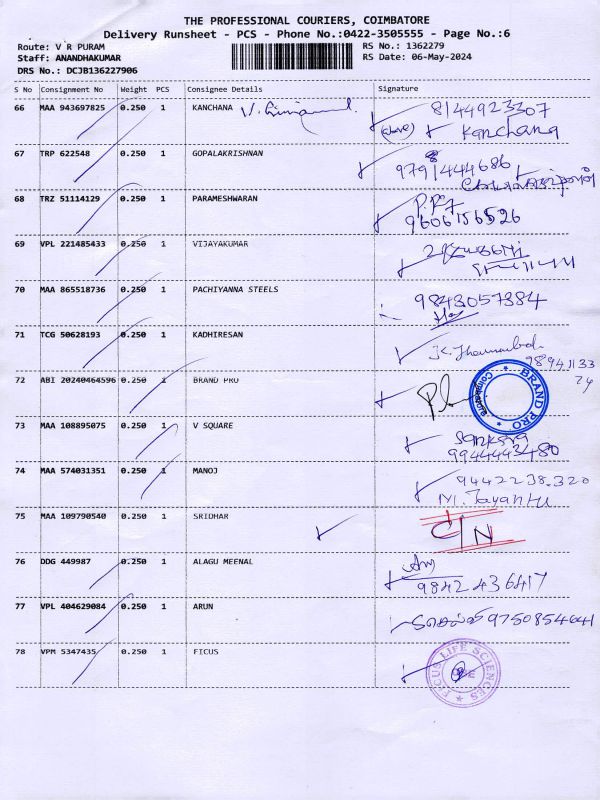 THE PROFESSIONAL COURIERS, COIMBATORE
Delivery Runsheet - PCS - Phone No.:0422-3505555 - Page No.:6
Route: V R PURAM RS No.: 1362279
Staff: ANANDHAKUMAR RS Date: 06-May-2024
DRS No.: DCJB136227906
S No Consignment No Weight PCS Consignee Details Signature
66 MAA 943697825 0.250 1 KANCHANA 8144923307
Kanchana
67 TRP 622548 0.250 1 GOPALAKRISHNAN
68 TRZ 51114129 0.250 1 PARAMESHWARAN
9606156526
69 VPL 221485433 0.250 1 VIJAYAKUMAR
70 MAA 865518736 0.250 1 PACHIYANNA STEELS 9843057384
71 TCG 50628193 0.250 1 KADHIRESAN
9894133
24
72 ABI 20240464596 0.250 1 BRAND PRO BRAND PRO
Coimbatore
73 MAA 108895075 0.250 1 V SQUARE
9944443480
74 MAA 574031351 0.250 1 MANOJ 9442238.320
M. Jayanthi
75 MAA 109790540 0.250 1 SRIDHAR C/N
76 DDG 449987 0.250 1 ALAGU MEENAL
9842436417
77 VPL 404629084 0.250 1 ARUN 9750854641
78 VPM 5347435 0.250 1 FICUS FICUS LIFE SCIENCES